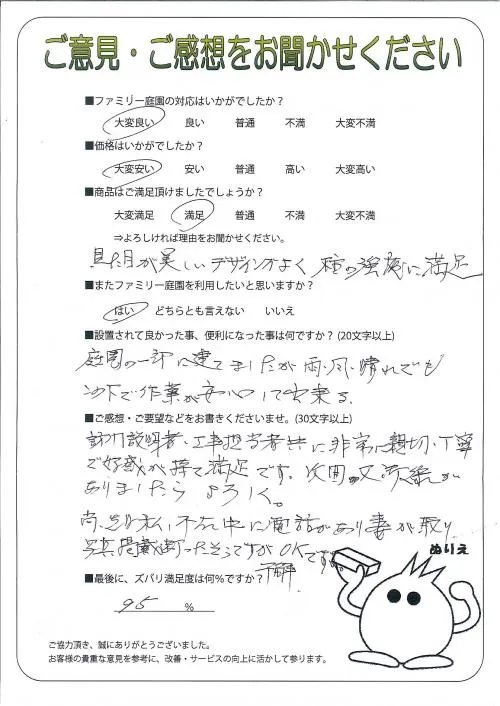 ご意見・ご感想をお聞かせください
■ファミリー庭園の対応はいかがでしたか?
大変良い 良い 普通 不満 大変不満
■価格はいかがでしたか?
大変安い 安い 普通 高い 大変高い
■商品はご満足頂けましたでしょうか?
大変満足 満足 普通 不満 大変不満
⇒よろしければ理由をお聞かせください。
見た目が美しいデザインがよく 柱の強度に満足
■またファミリー庭園を利用したいと思いますか?
はい どちらとも言えない いいえ
■設置されて良かった事、便利になった事は何ですか?(20文字以上)
庭園の一部に建てましたが雨、風、晴れでも
の下で作業が安心して出来る。
■ご感想・ご要望などをお書きくださいませ。(30文字以上)
説明者、工事担当者共に非常に親切、丁寧
で好感が持て満足です。次回の又
ありましたら よろしく。
尚、私、不在中に電話があり妻が取り
写真掲載断ったそうですがOKです。
■最後に、ズバリ満足度は何%ですか?
95 %
ぬりえ
ご協力頂き、誠にありがとうございました。
お客様の貴重な意見を参考に、改善・サービスの向上に活かして参ります。